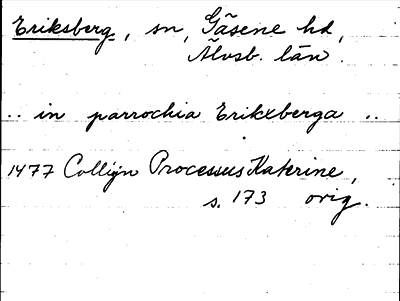 Eriksberg, sn, Gäsene hd,
Älvsb. län.
.. in parrochia Erikxberga ..
1477 Collijn Processus Katerine,
s. 173 orig.